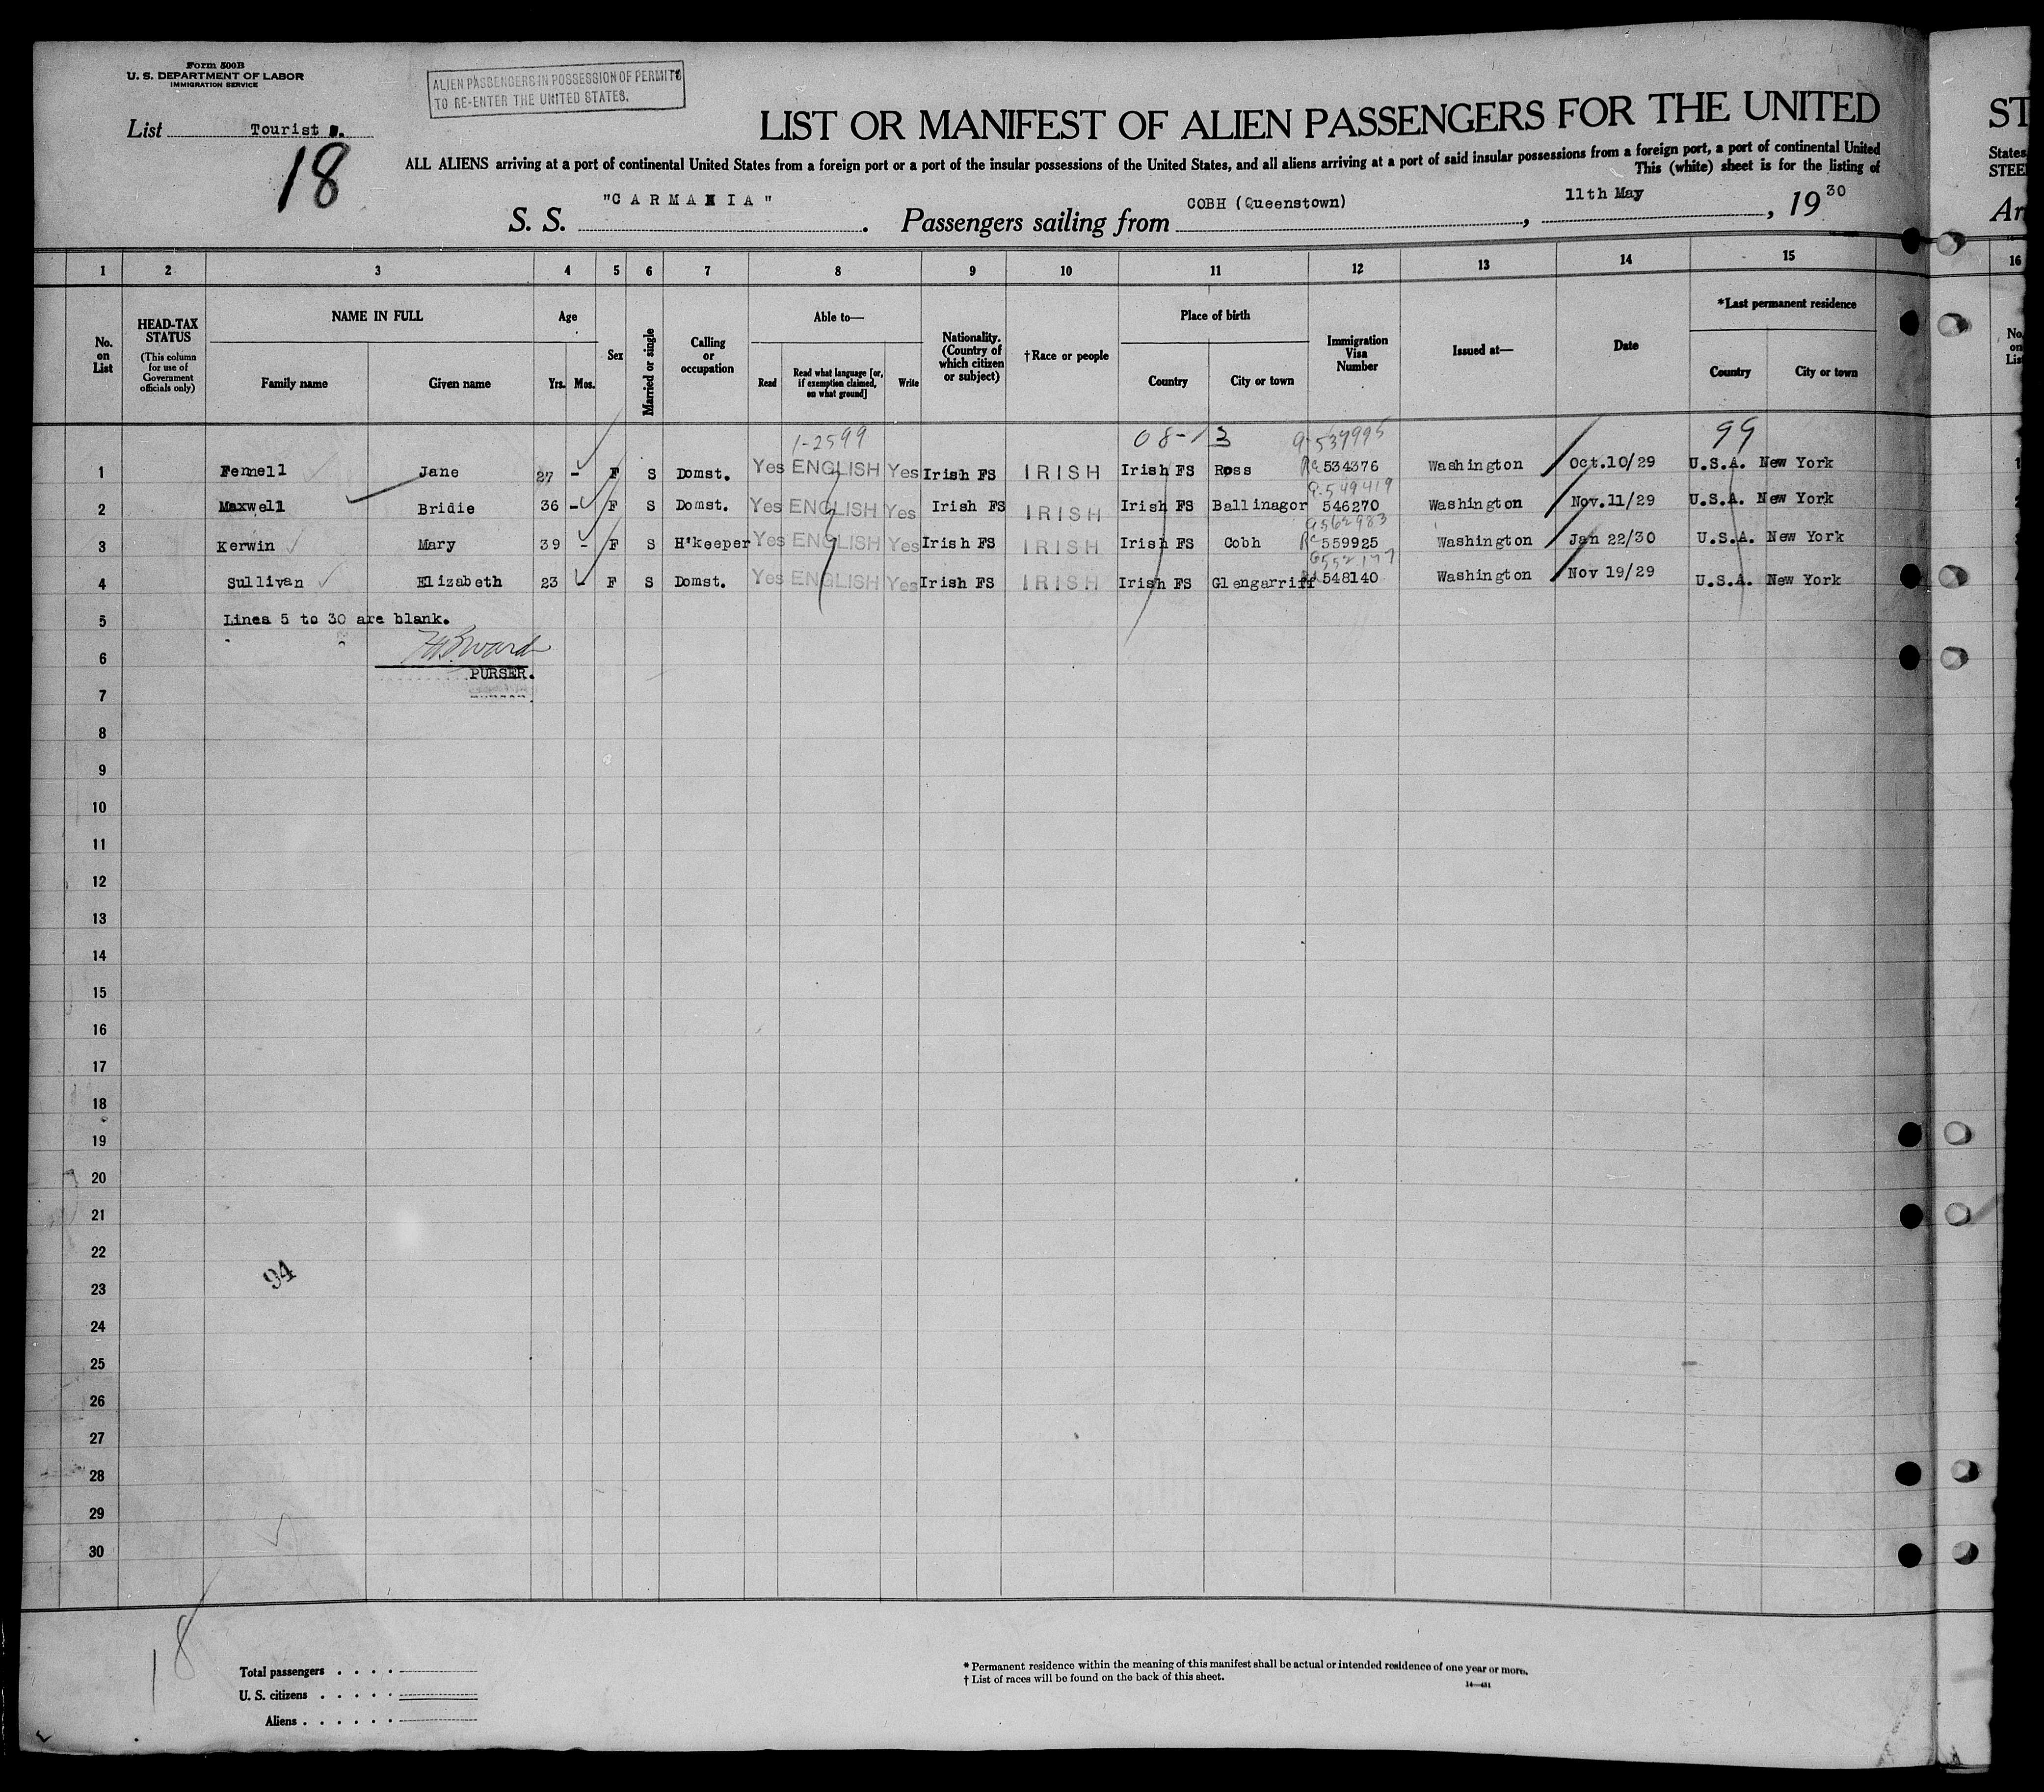 Form 500B
U. S. DEPARTMENT OF LABOR
IMMIGRATION SERVICE
ALIEN PASSENGERS IN POSSESSION OF PERMITS
TO RE-ENTER THE UNITED STATES.
List Tourist
18
LIST OR MANIFEST OF ALIEN PASSENGERS FOR THE UNITED
ST
ALL ALIENS arriving at a port of continental United States from a foreign port or a port of the insular possessions of the United States, and all aliens arriving at a port of said insular possessions from a foreign port, a port of continental United
States
This (white) sheet is for the listing of
S. S. "CARMANIA". Passengers sailing from COBH (Queenstown), 11th May, 1930
1 2 3 4 5 6 7 8 9 10 11 12 13 14 15 16
No. on List
HEAD-TAX STATUS
(This column for use of Government officials only)
NAME IN FULL
Family name Given name
Age
Yrs. Mos.
Sex
Married or single
Calling or occupation
Able to—
Read Read what language [or, if exemption claimed, on what ground] Write
Nationality. (Country of which citizen or subject)
† Race or people
Place of birth
Country City or town
Immigration Visa Number
Issued at—
Date
*Last permanent residence
Country City or town
1-2599 08-13 99
1 Fennell Jane 27 - F S Domst. Yes ENGLISH Yes Irish FS IRISH Irish FS Ross 534376 Washington Oct.10/29 U.S.A. New York
2 Maxwell Bridie 36 - F S Domst. Yes ENGLISH Yes Irish FS IRISH Irish FS Ballinagor 546270 Washington Nov.11/29 U.S.A. New York
3 Kerwin Mary 39 - F S H'keeper Yes ENGLISH Yes Irish FS IRISH Irish FS Cobh 559925 Washington Jan 22/30 U.S.A. New York
4 Sullivan Elizabeth 23 F S Domst. Yes ENGLISH Yes Irish FS IRISH Irish FS Glengarriff 548140 Washington Nov 19/29 U.S.A. New York
5 Lines 5 to 30 are blank.
6
PURSER.
7
8
9
10
11
12
13
14
15
16
17
18
19
20
21
22
94
23
24
25
26
27
28
29
30
18
Total passengers
U. S. citizens
Aliens
* Permanent residence within the meaning of this manifest shall be actual or intended residence of one year or more.
† List of races will be found on the back of this sheet.